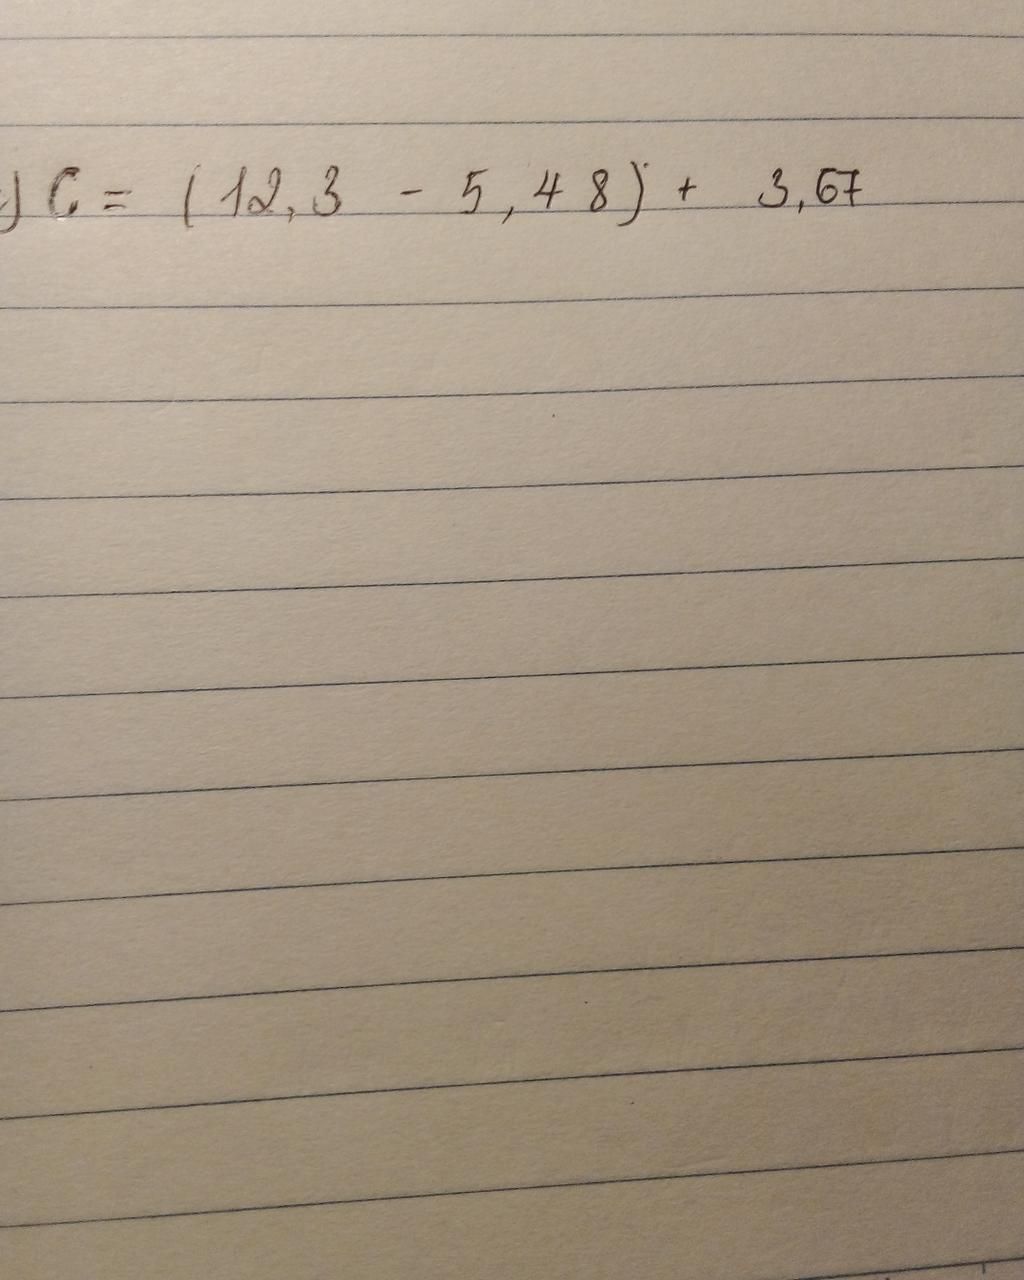 ) C = (12,3 - 5,48) + 3,67